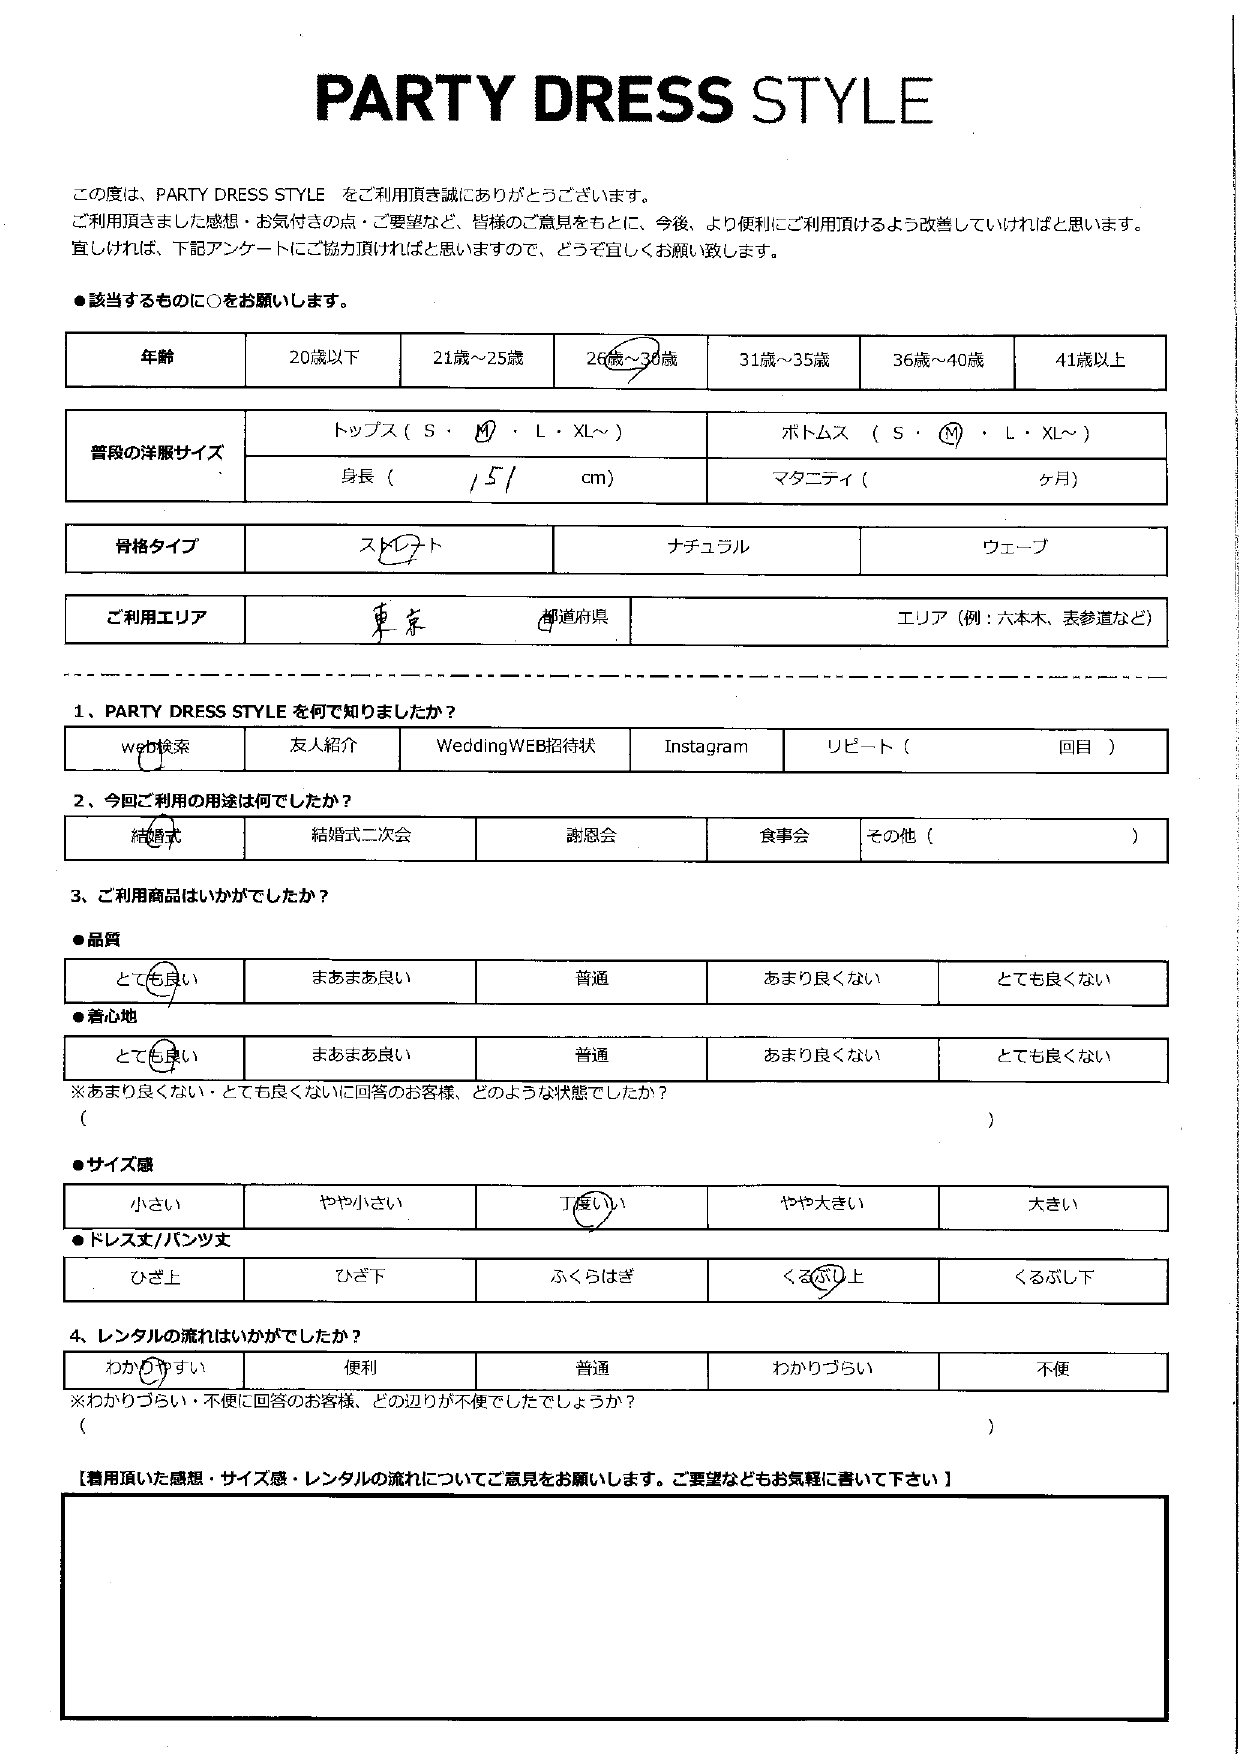 PARTY DRESS STYLE
この度は、PARTY DRESS STYLE　をご利用頂き誠にありがとうございます。
ご利用頂きました感想・お気付きの点・ご要望など、皆様のご意見をもとに、今後、より便利にご利用頂けるよう改善していければと思います。
宜しければ、下記アンケートにご協力頂ければと思いますので、どうぞ宜しくお願い致します。
●該当するものに○をお願いします。
年齢 20歳以下 21歳～25歳 26歳～30歳 31歳～35歳 36歳～40歳 41歳以上
普段の洋服サイズ トップス ( S ・ M ・ L ・ XL～ ) ボトムス ( S ・ M ・ L ・ XL～ )
身長 ( 151 cm) マタニティ ( ヶ月)
骨格タイプ ストレート ナチュラル ウェーブ
ご利用エリア 東京 都道府県 エリア（例：六本木、表参道など）
1、PARTY DRESS STYLE を何で知りましたか？
web検索 友人紹介 WeddingWEB招待状 Instagram リピート ( 回目 )
2、今回ご利用の用途は何でしたか？
結婚式 結婚式二次会 謝恩会 食事会 その他 ( )
3、ご利用商品はいかがでしたか？
●品質
とても良い まあまあ良い 普通 あまり良くない とても良くない
●着心地
とても良い まあまあ良い 普通 あまり良くない とても良くない
※あまり良くない・とても良くないに回答のお客様、どのような状態でしたか？
( )
●サイズ感
小さい やや小さい 丁度いい やや大きい 大きい
●ドレス丈/パンツ丈
ひざ上 ひざ下 ふくらはぎ くるぶし上 くるぶし下
4、レンタルの流れはいかがでしたか？
わかりやすい 便利 普通 わかりづらい 不便
※わかりづらい・不便に回答のお客様、どの辺りが不便でしたでしょうか？
( )
【着用頂いた感想・サイズ感・レンタルの流れについてご意見をお願いします。ご要望などもお気軽に書いて下さい】